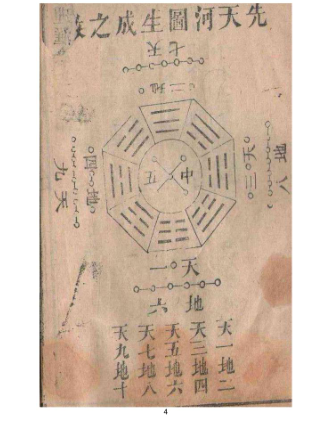 先天河圖生成之
天七
地二
天三
地八
中五
地四
天九
天一
地六
天一地二
天三地四
天五地六
天七地八
天九地十
4